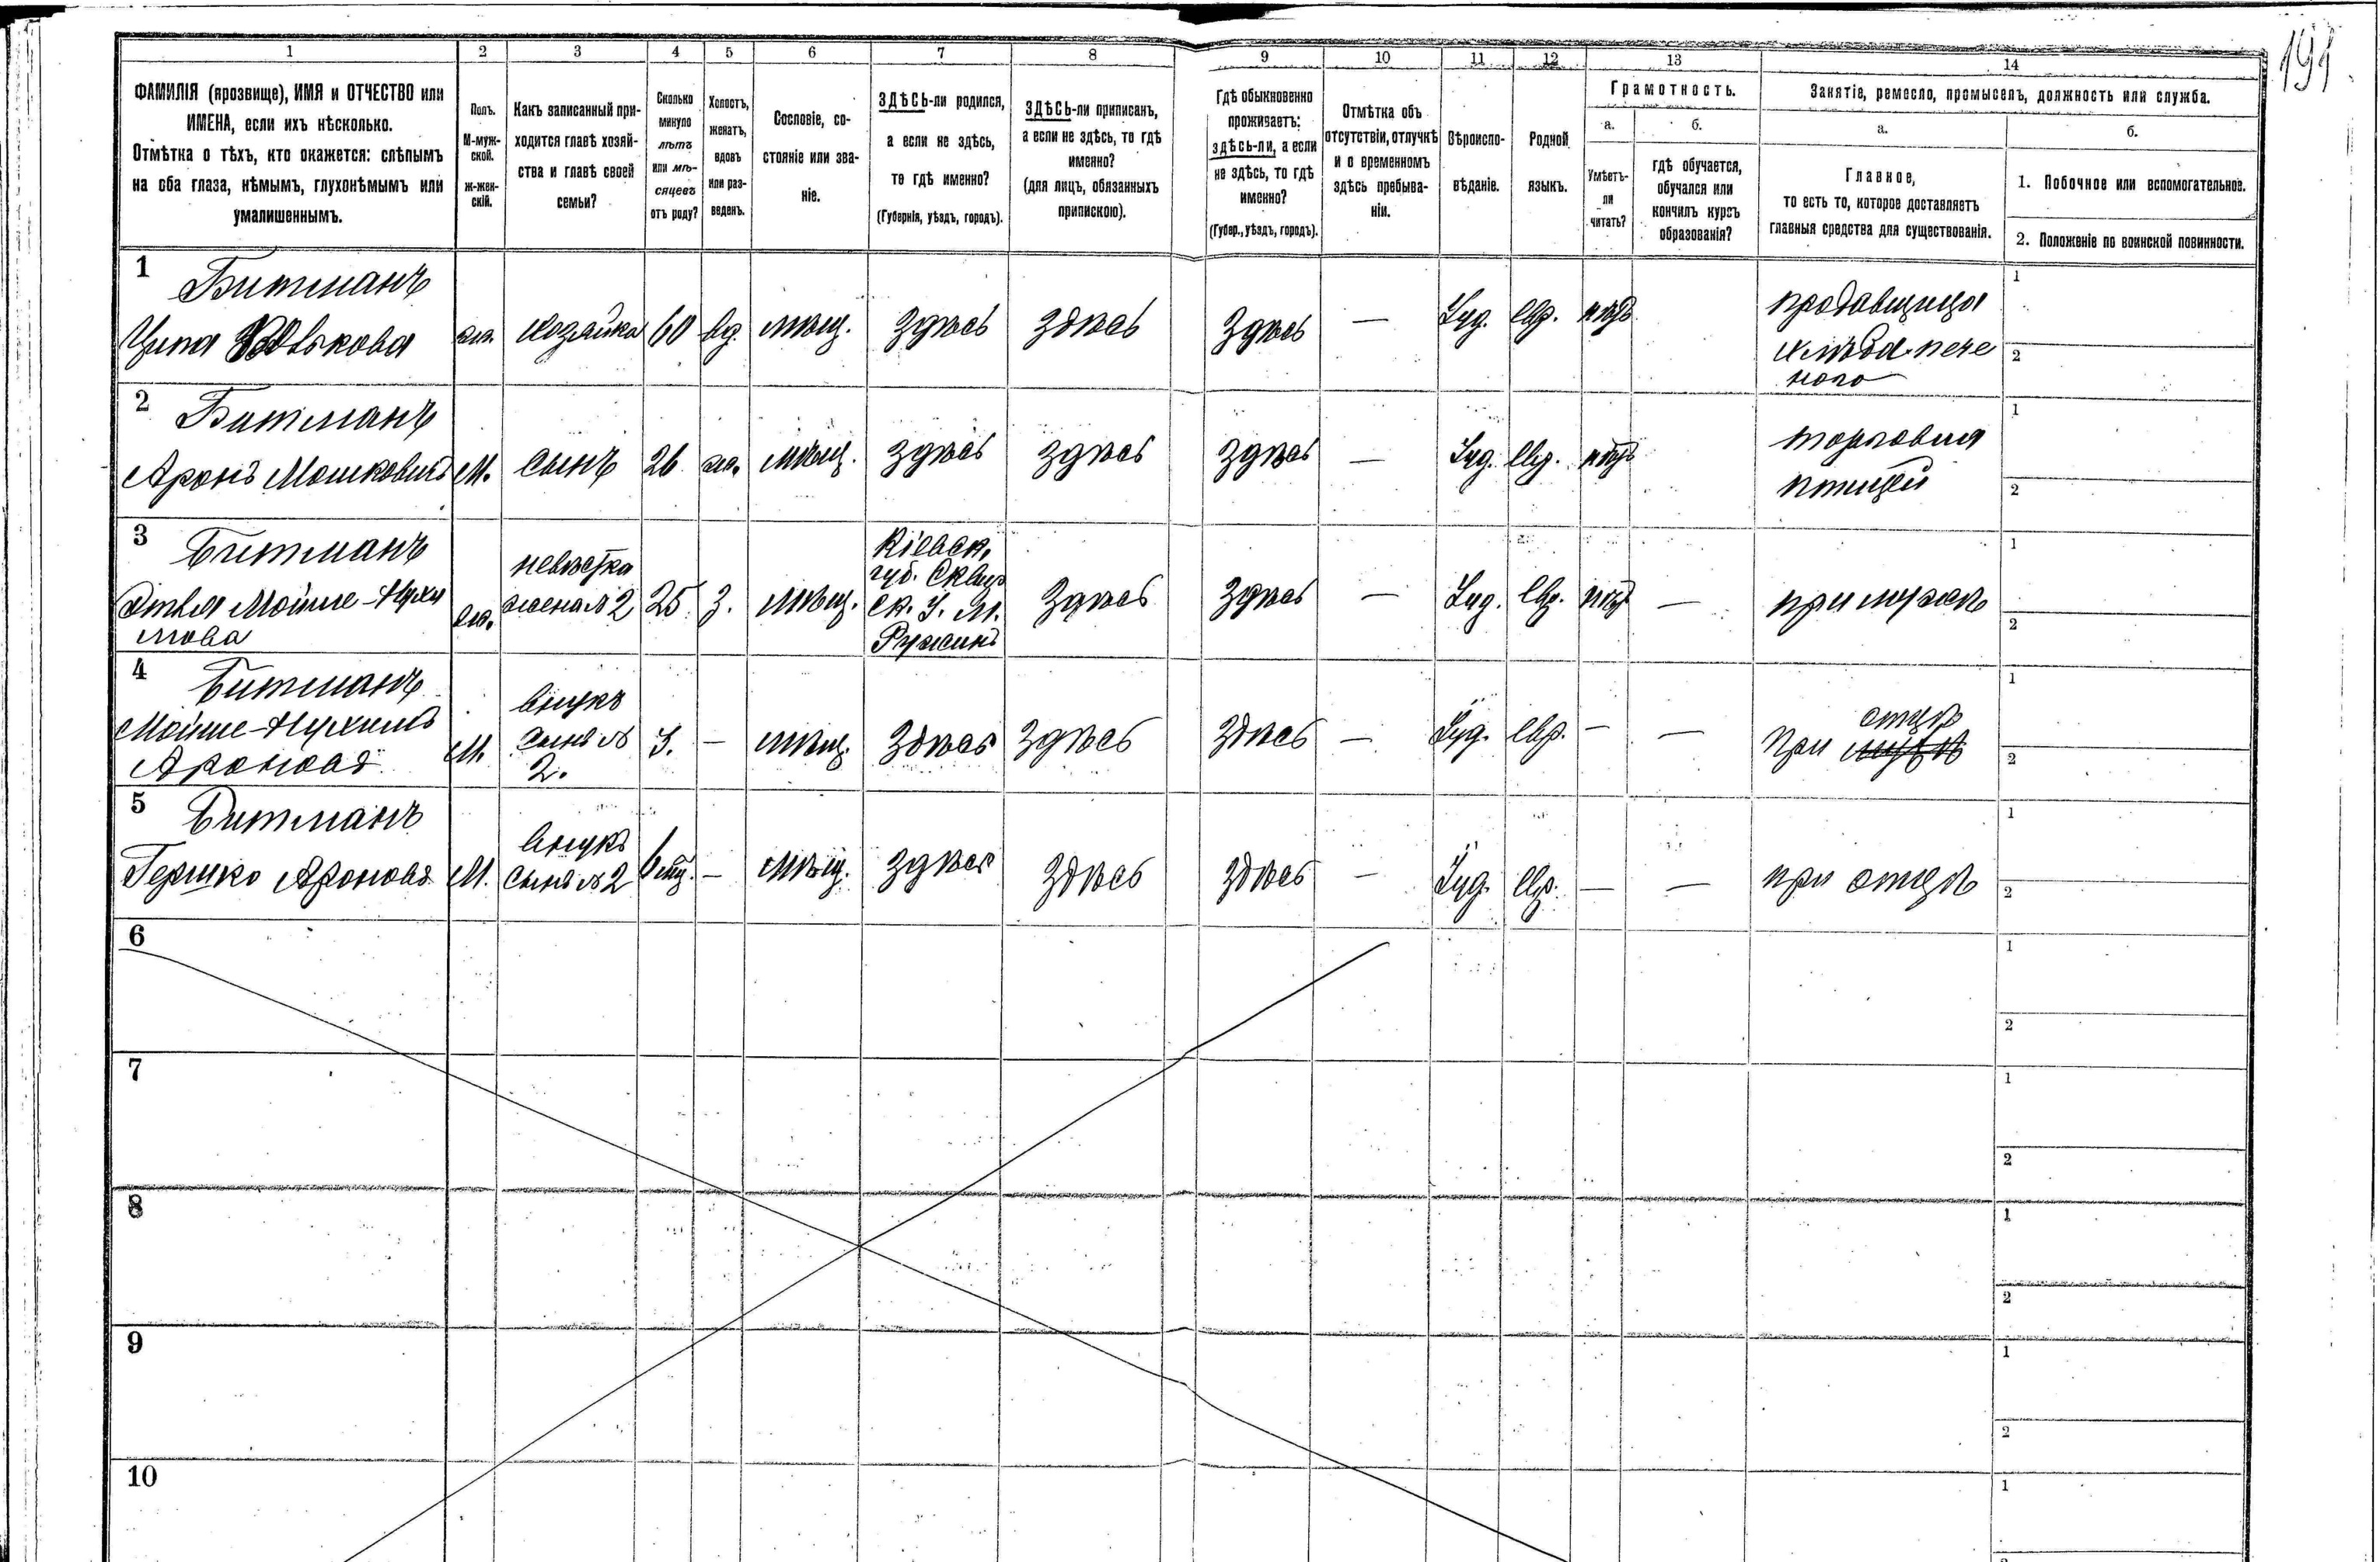 191
1 2 3 4 5 6 7 8 9 10 11 12 13 14
ФАМИЛІЯ (прозвище), ИМЯ и ОТЧЕСТВО или
ИМЕНА, если ихъ нѣсколько.
Отмѣтка о тѣхъ, кто окажется: слѣпымъ
на оба глаза, нѣмымъ, глухонѣмымъ или
умалишеннымъ.
Полъ.
М-муж-
ской.
Ж-жен-
скій.
Какъ записанный при-
ходится главѣ хозяй-
ства и главѣ своей
семьи?
Сколько
минуло
лѣтъ
или мѣ-
сяцевъ
отъ роду?
Холостъ,
женатъ,
вдовъ
или раз-
веденъ.
Сословіе, со-
стояніе или зва-
ніе.
ЗДѢСЬ-ли родился,
а если не здѣсь,
то гдѣ именно?
(Губернія, уѣздъ, городъ).
ЗДѢСЬ-ли приписанъ,
а если не здѣсь, то гдѣ
именно?
(для лицъ, обязанныхъ
припискою).
Гдѣ обыкновенно
проживаетъ:
здѣсь-ли, а если
не здѣсь, то гдѣ
именно?
(Губер., уѣздъ, городъ).
Отмѣтка объ
отсутствіи, отлучкѣ
и о временномъ
здѣсь пребыва-
ніи.
Вѣроиспо-
вѣданіе.
Родной
языкъ.
Грамотность.
а.
Умѣетъ-
ли
читать?
б.
гдѣ обучается,
обучался или
кончилъ курсъ
образованія?
Занятіе, ремесло, промыселъ, должность или служба.
а.
Главное,
то есть то, которое доставляетъ
главныя средства для существованія.
б.
1. Побочное или вспомогательное.
2. Положеніе по воинской повинности.
1
Битманъ
Ципа Волькова
ж.
хозяйка
60
вд.
мѣщ.
здѣсь
здѣсь
здѣсь
—
Іуд.
Евр.
нѣтъ
продавщица
хлѣба пече
ного
1
2
2
Битманъ
Аронъ Мошковичъ
М.
сынъ
26
ж.
мѣщ.
здѣсь
здѣсь
здѣсь
—
Іуд.
Евр.
нѣтъ
торговля
птицей
1
2
3
Битманъ
Мойше-Нухи
мова
ж.
невѣстка
жена № 2
25
З.
мѣщ.
Кіевск.
губ. Сквир
ск. у. м.
Ружинъ
здѣсь
здѣсь
—
Іуд.
Евр.
нѣтъ
—
при мужѣ
1
2
4
Битманъ
Мойше-Нухимъ
Ароновъ
М.
внукъ
сынъ №
2.
3.
—
мѣщ.
здѣсь
здѣсь
здѣсь
—
Іуд.
Евр.
—
—
отцѣ
при мужѣ
1
2
5
Битманъ
Гершко Ароновъ
М.
внукъ
сынъ № 2
—
мѣщ.
здѣсь
здѣсь
здѣсь
—
Іуд.
Евр.
—
—
при отцѣ
1
2
6
1
2
7
1
2
8
1
2
9
1
2
10
1